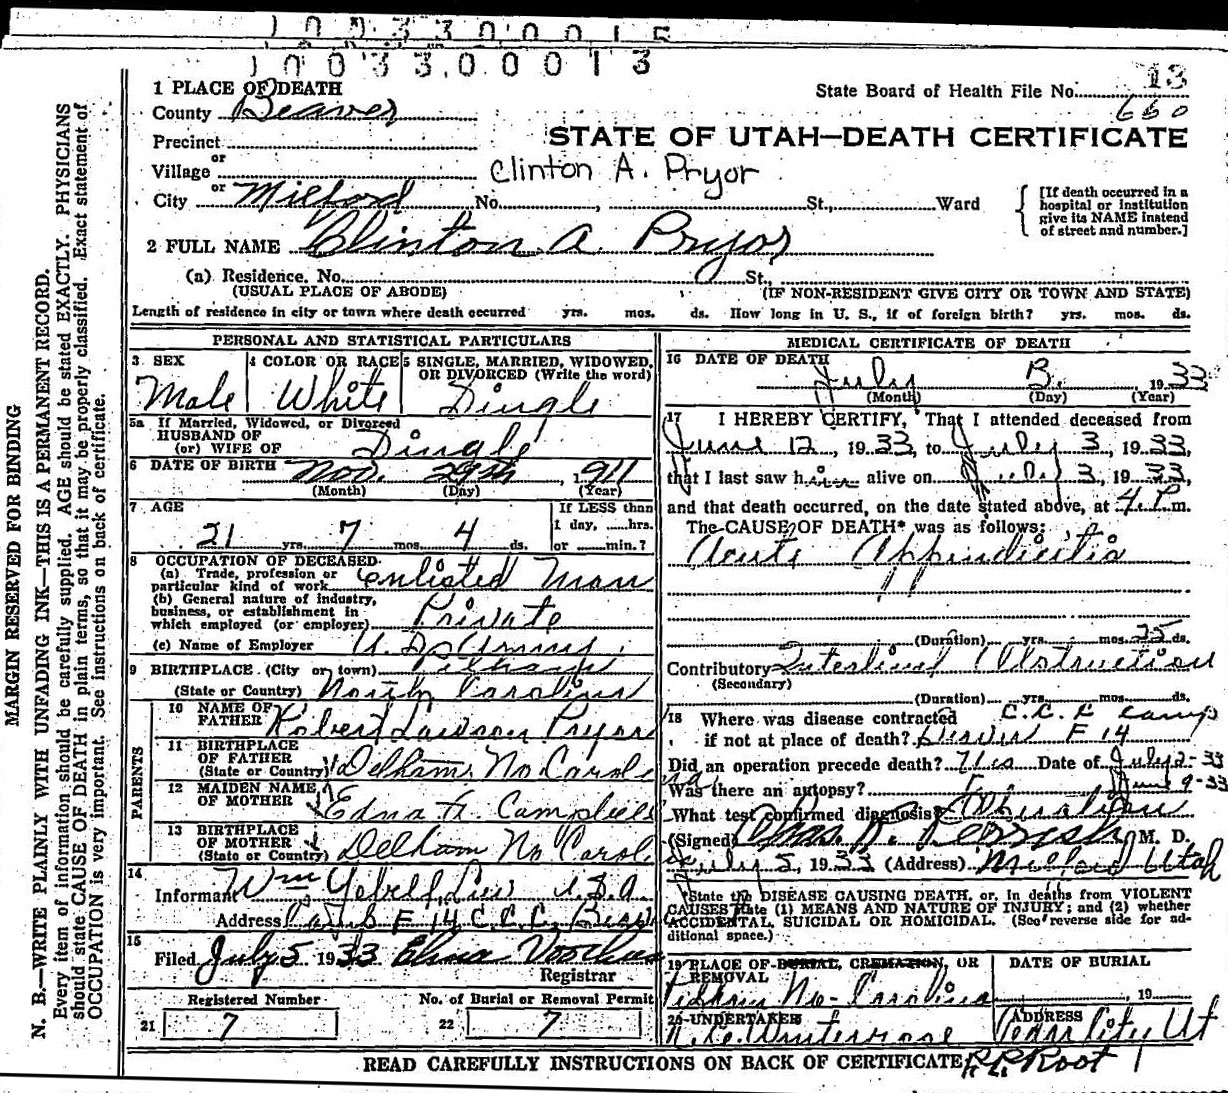 1003300015
1003300013
1 PLACE OF DEATH
State Board of Health File No. 13
County Beaver
660
STATE OF UTAH—DEATH CERTIFICATE
Precinct
or
Village
Clinton A. Pryor
or
City Milford No. , St., Ward
[If death occurred in a hospital or institution give its NAME instead of street and number.]
2 FULL NAME Clinton A. Pryor
(a) Residence. No. St.,
(USUAL PLACE OF ABODE) (IF NON-RESIDENT GIVE CITY OR TOWN AND STATE)
Length of residence in city or town where death occurred yrs. mos. ds. How long in U. S., if of foreign birth? yrs. mos. ds.
PERSONAL AND STATISTICAL PARTICULARS
3 SEX
Male
4 COLOR OR RACE
White
5 SINGLE, MARRIED, WIDOWED, OR DIVORCED (Write the word)
Single
5a If Married, Widowed, or Divorced
HUSBAND OF
(or) WIFE OF Single
6 DATE OF BIRTH Nov. 29th, 1911
(Month) (Day) (Year)
7 AGE
21 yrs. 7 mos. 4 ds.
If LESS than
1 day, ......hrs.
or ......min.?
8 OCCUPATION OF DECEASED
(a) Trade, profession or
particular kind of work Enlisted Man
(b) General nature of industry,
business, or establishment in
which employed (or employer) Private
(c) Name of Employer U. S. Army.
9 BIRTHPLACE (City or town) Pelham
(State or Country) North Carolina
PARENTS
10 NAME OF
FATHER Robert Lawson Pryor
11 BIRTHPLACE
OF FATHER
(State or Country) Pelham No Carolina
12 MAIDEN NAME
OF MOTHER Edna H. Campbell
13 BIRTHPLACE
OF MOTHER
(State or Country) Pelham No Carol
14
Informant Wm U.S.A.
Address Camp F 14 C.C.C.
15
Filed July 5 1933 Elma
Registrar
Registered Number
21 7
No. of Burial or Removal Permit
22 7
MEDICAL CERTIFICATE OF DEATH
16 DATE OF DEATH
July 3. , 1933
(Month) (Day) (Year)
17 I HEREBY CERTIFY, That I attended deceased from
June 12, 1933, to July 3, 1933,
that I last saw him alive on July 3, 1933,
and that death occurred, on the date stated above, at 4 P. m.
The CAUSE OF DEATH* was as follows:
Acute Appendicitis
(Duration) yrs. mos. 25 ds.
Contributory Intestinal Obstruction
(Secondary)
(Duration) yrs. mos. ds.
18 Where was disease contracted C.C.C camp
if not at place of death? F 14
Did an operation precede death? Yes Date of July 2-33
June 9-33
Was there an autopsy?
What test confirmed diagnosis?
(Signed) Chas. M. D.
July 5, 1933 (Address) Milford Utah
*State the DISEASE CAUSING DEATH, or, in deaths from VIOLENT
CAUSES state (1) MEANS AND NATURE OF INJURY; and (2) whether
ACCIDENTAL, SUICIDAL OR HOMICIDAL. (See reverse side for additional space.)
19 PLACE OF BURIAL, CREMATION, OR
REMOVAL
Pelham No-Carolina
DATE OF BURIAL
, 19
20 UNDERTAKER
Winterrose
ADDRESS
Cedar City Ut
READ CAREFULLY INSTRUCTIONS ON BACK OF CERTIFICATE
R.R. Root
MARGIN RESERVED FOR BINDING
N. B.—WRITE PLAINLY WITH UNFADING INK—THIS IS A PERMANENT RECORD.
Every item of information should be carefully supplied. AGE should be stated EXACTLY. PHYSICIANS
should state CAUSE OF DEATH in plain terms, so that it may be properly classified. Exact statement of
OCCUPATION is very important. See instructions on back of certificate.